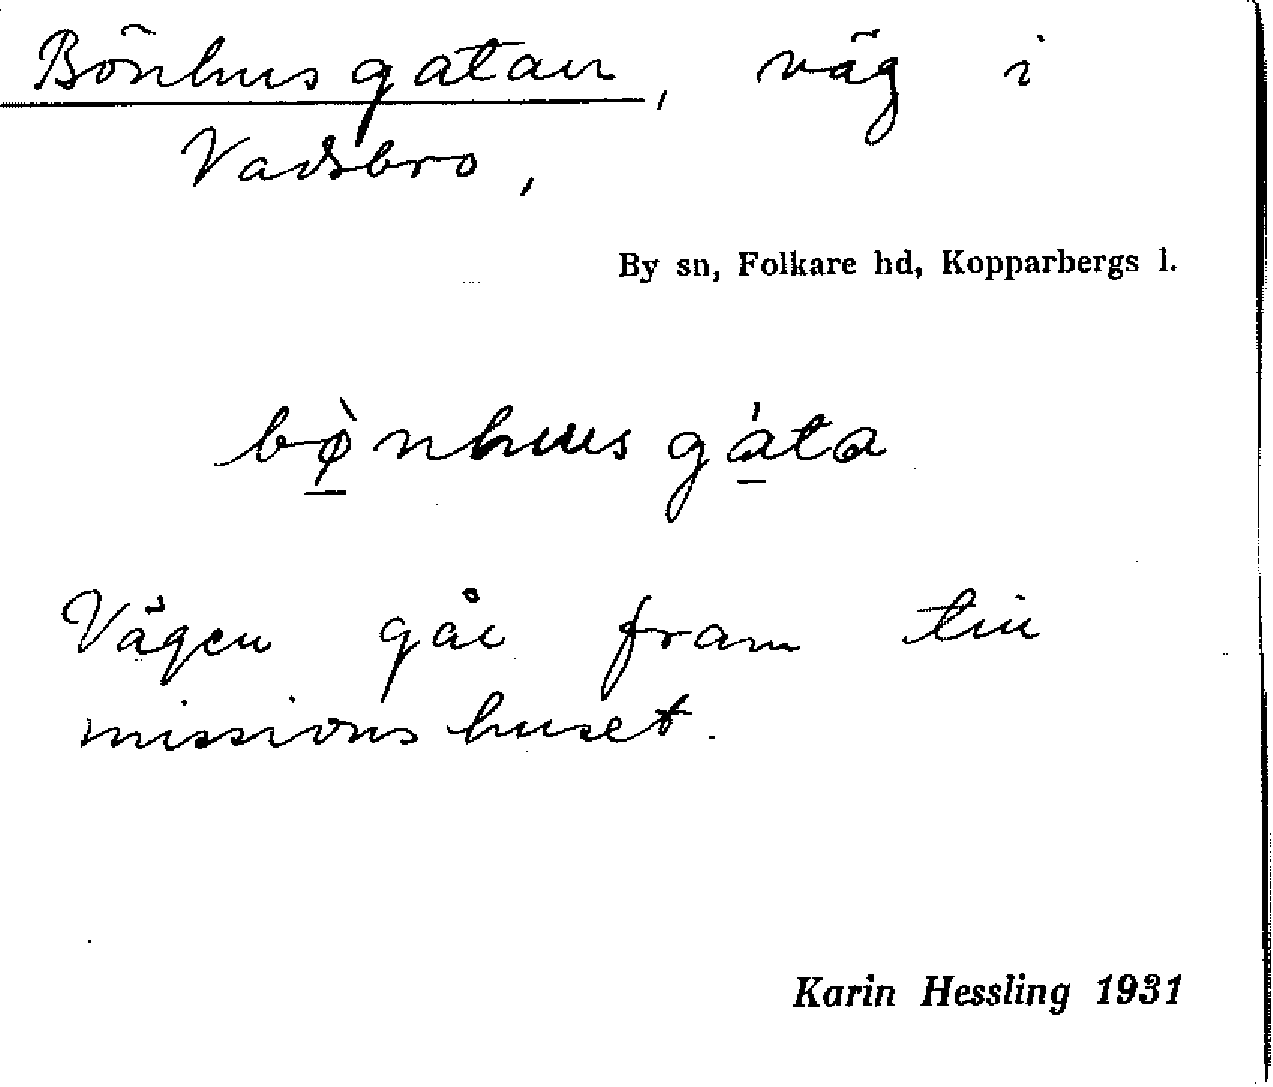 Bönhusgatan, väg i
Vadsbro,
By sn, Folkare hd, Kopparbergs l.
bø̀nhusgáta
Vägen går fram till
missionshuset.
Karin Hessling 1931